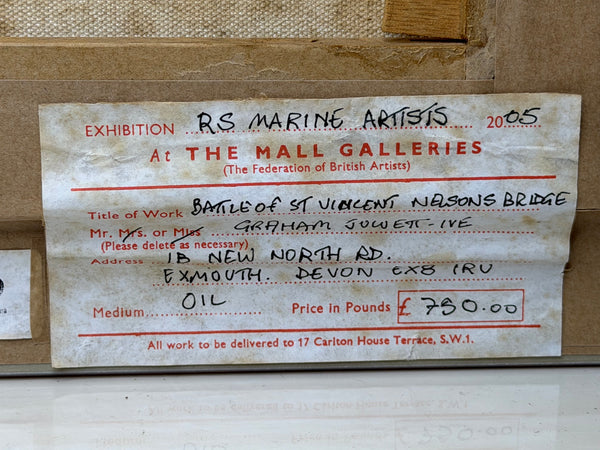 EXHIBITION RS MARINE ARTISTS 2005
At THE MALL GALLERIES
(The Federation of British Artists)
Title of Work BATTLE OF ST VINCENT NELSONS BRIDGE
Mr. Mrs. or Miss GRAHAM JOWETT-IVE
(Please delete as necessary)
Address 1B NEW NORTH RD.
EXMOUTH. DEVON EX8 1RU
Medium OIL Price in Pounds £ 750.00
All work to be delivered to 17 Carlton House Terrace, S.W.1.